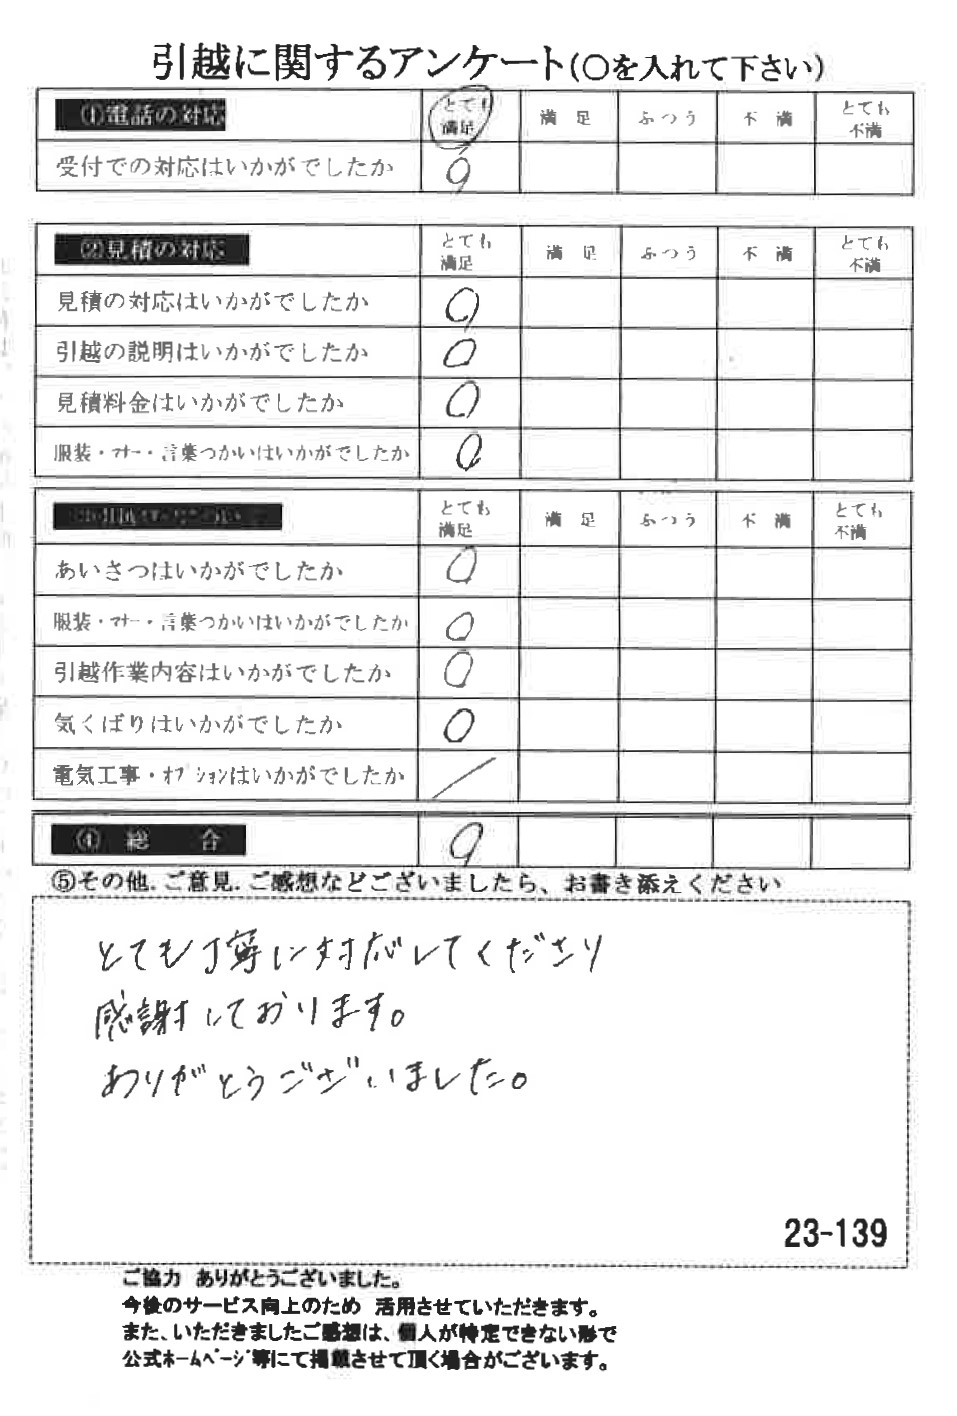 引越に関するアンケート(○を入れて下さい)
(1)電話の対応 とても満足 満足 ふつう 不満 とても不満
受付での対応はいかがでしたか ○
(2)見積の対応 とても満足 満足 ふつう 不満 とても不満
見積の対応はいかがでしたか ○
引越の説明はいかがでしたか ○
見積料金はいかがでしたか ○
服装・マナー・言葉つかいはいかがでしたか ○
とても満足 満足 ふつう 不満 とても不満
あいさつはいかがでしたか ○
服装・マナー・言葉つかいはいかがでしたか ○
引越作業内容はいかがでしたか ○
気くばりはいかがでしたか ○
電気工事・オプションはいかがでしたか /
(4) 総 合 ○
⑤その他.ご意見.ご感想などございましたら、お書き添えください
とても丁寧に対応してくださり
感謝しております。
ありがとうございました。
23-139
ご協力 ありがとうございました。
今後のサービス向上のため 活用させていただきます。
また、いただきましたご感想は、個人が特定できない形で
公式ホームページ等にて掲載させて頂く場合がございます。